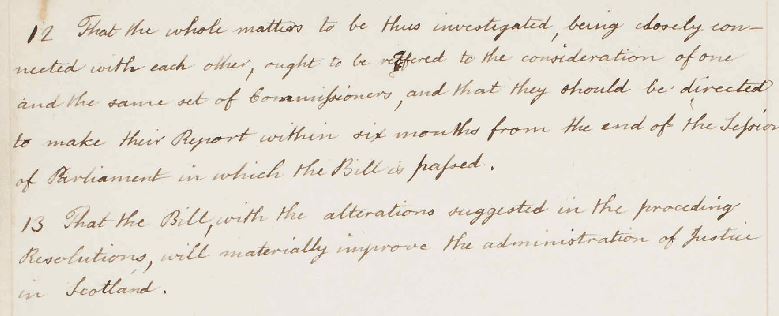 12 That the whole matters to be thus investigated, being closely con-
nected with each other, ought to be reffered to the consideration of one
and the same set of Commissioners, and that they should be directed
to make their Report within six months from the end of the Session
of Parliament in which the Bill is passed.
13 That the Bill, with the alterations suggested in the preceding
Resolutions, will materially improve the administration of Justice
in Scotland.